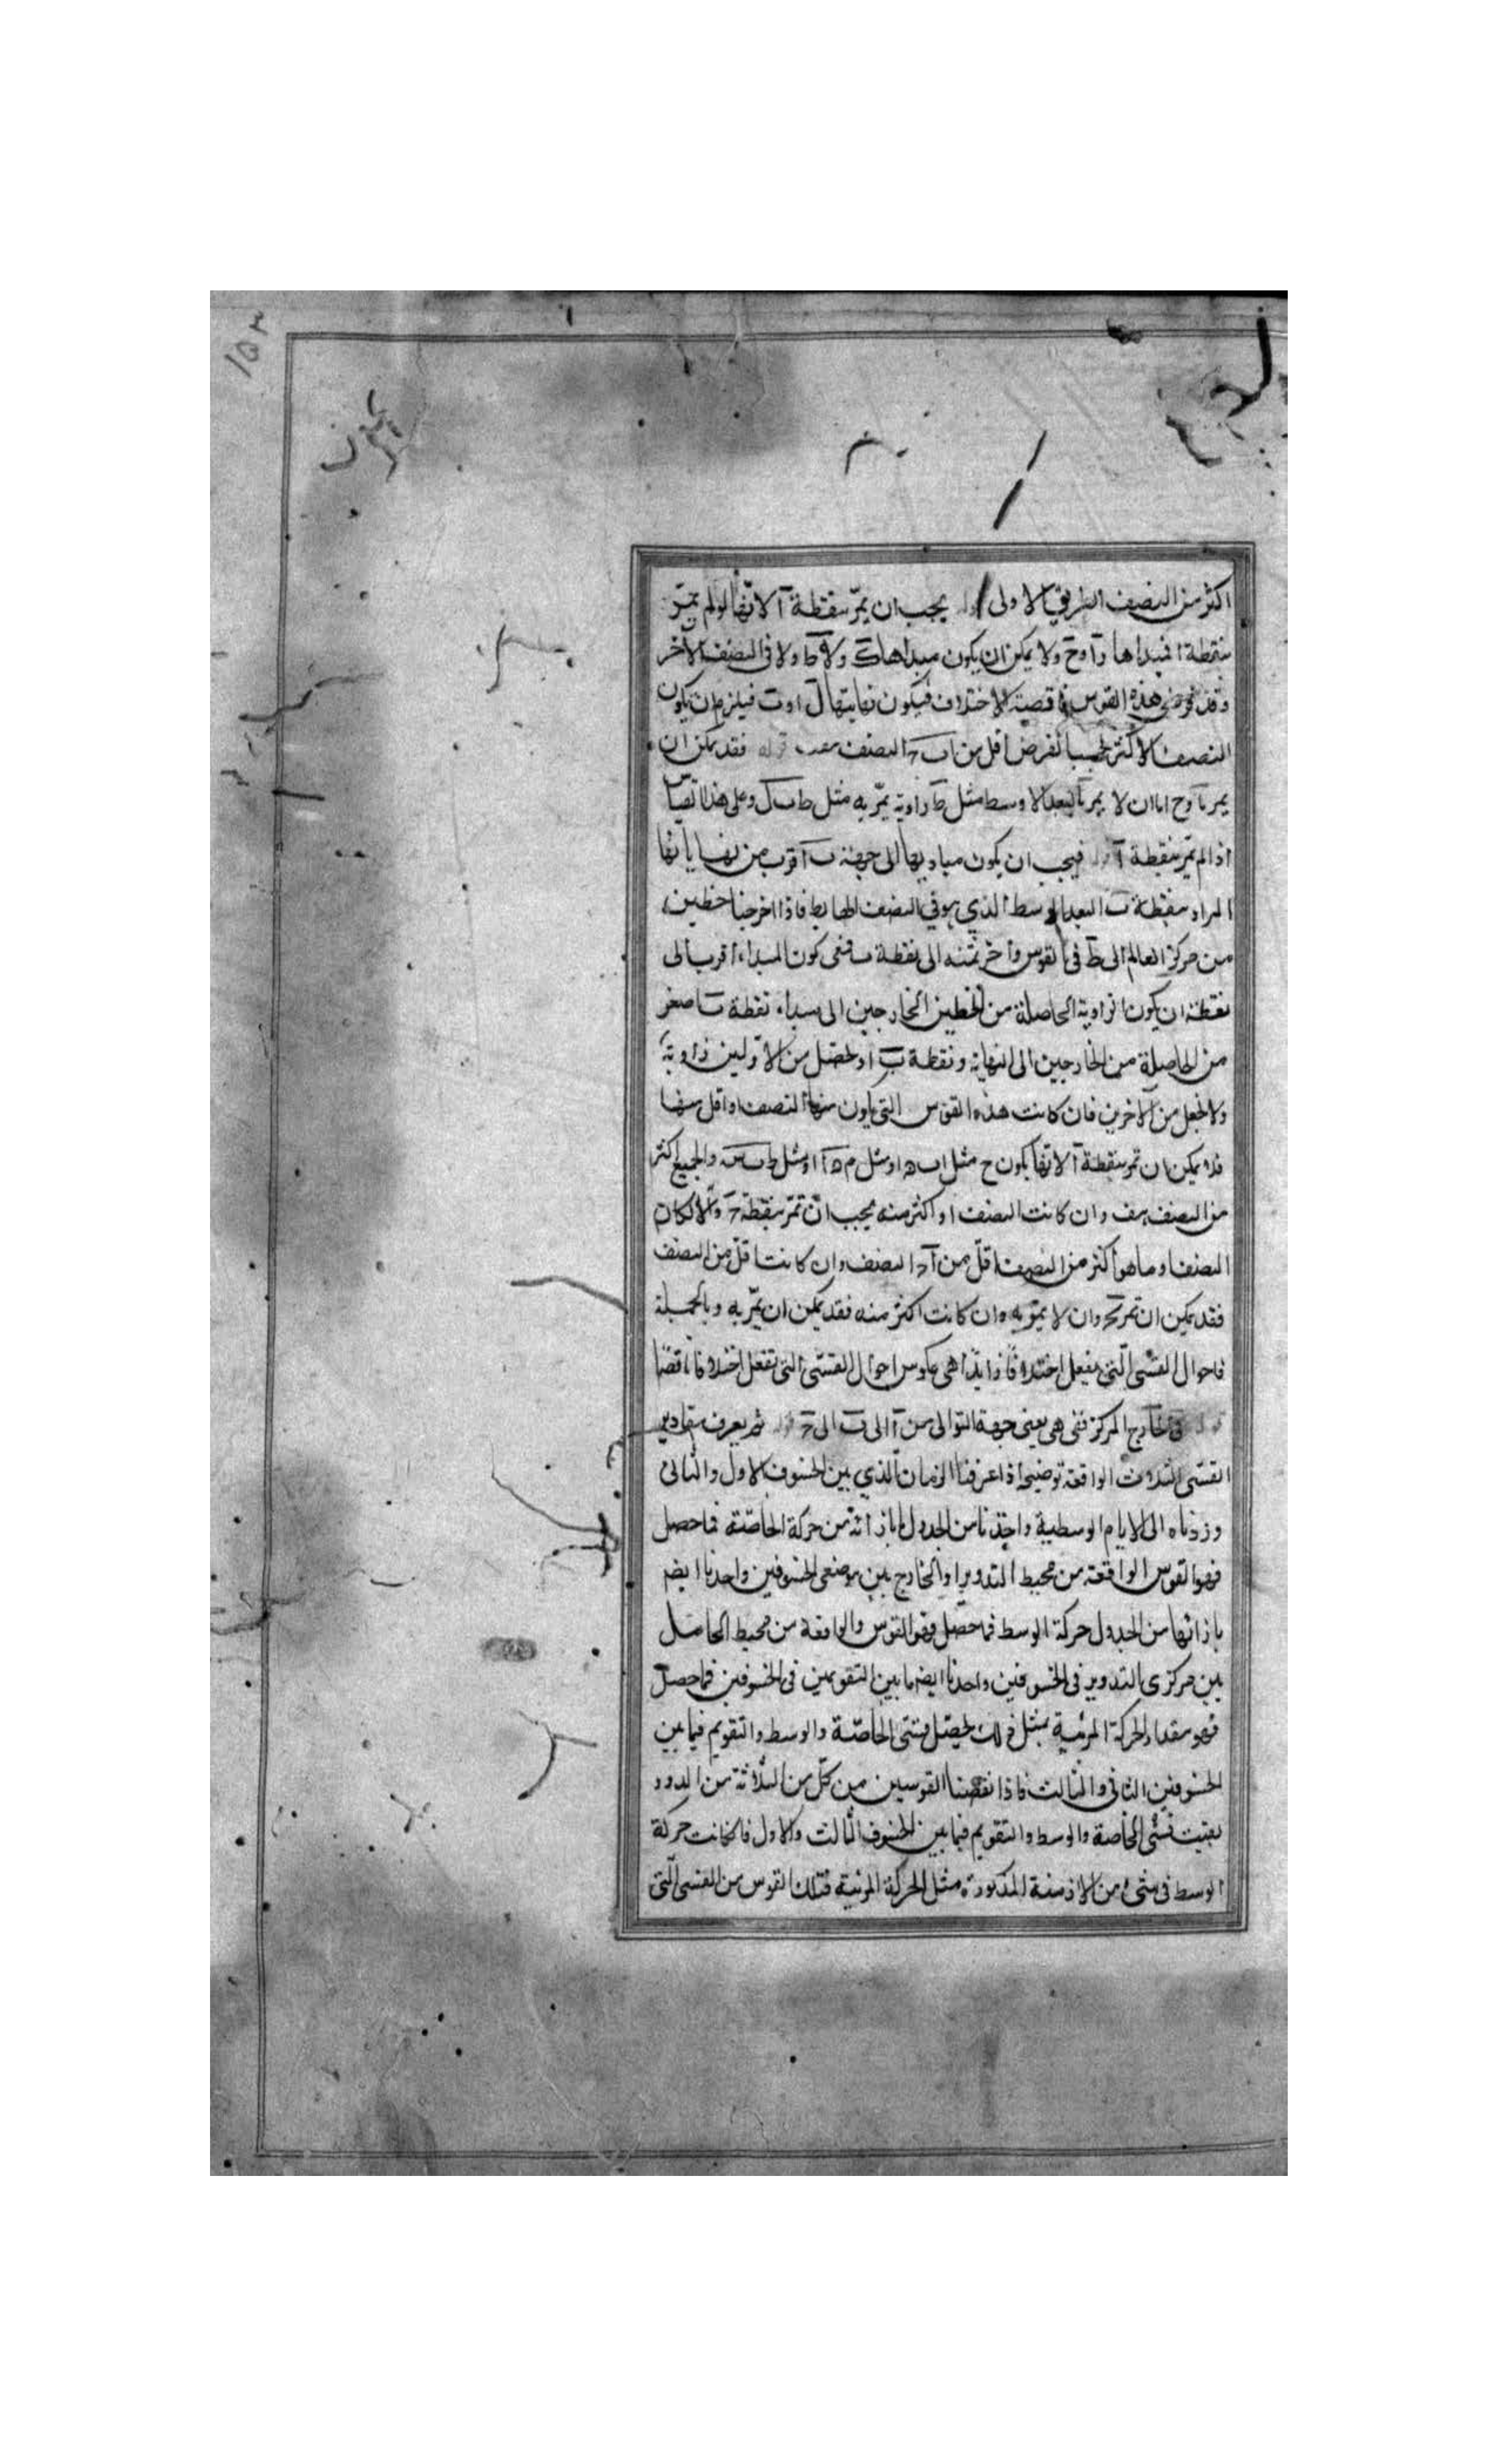 ١٥٢
اكثر من النصف الطريق الاولى يجب ان يمرّ بنقطة آ لانّها لو لم تمرّ
بنقطة ا فمبداها ولا يمكن ان يكون مبداها ولا ولا فى النصف الآخر
وقد فرض هذه القوس ناقصة الاختلاف فيكون نهايتها فيلزم ان يكون
النصف الاكثر بحسب الفرض اقل من النصف فقد يمكن ان
يمر اما ان لا يمر بالبعد الاوسط مثل يمرّ به مثل وعلى هذا القياس
اذا لم تمرّ بنقطة آ فيجب ان يكون مباديها الى جهة ب اقرب من نهاياتها
المراد بنقطة ب البعد الاوسط الذي هو في النصف الهابط فاذا اخرجنا خطين
من مركز العالم الى فى القوس وآخر منه الى نقطة ب فمعنى كون المبداء اقرب الى
نقطة ان يكون الزاوية الحاصلة من الخطين الخارجين الى مبداء نقطة ب اصغر
من الحاصلة من الخارجين الى النهاية ونقطة ب او يحصل من الاولين زاوية
ولا يحصل من الآخرين فان كانت هذه القوس التى يكون منها النصف او اقل منها
فلا يمكن ان تمر بنقطة آ لانها يكون ح مثل او مثل او مثل والجميع اكثر
من النصف هف وان كانت النصف او اكثر منه يجب ان تمرّ بنقطة حـ والّا لكان
النصف او ما هو اكثر من النصف اقلّ من النصف وان كانت اقلّ من النصف
فقد يمكن ان تمر بحـ وان لا يمرّ به وان كانت اكثر منه فقد يمكن ان يمرّ به وبالجملة
فاحوال القسّى الّتى يفعل اختلافًا زايدًا هى عكوس احوال القسّى التى تفعل اختلافا ناقصًا
فى الخارج المركز ففى هى يعنى جهة التوالى من آ الى ب الى حـ ثم يعرف مقادير
القسّى الثلاث الواقعة توضيحه اذا عرفنا الزمان الّذي بين الخسوف الاول والثانى
وزدناه الى الايام الوسطية واخذنا من الجدول ما بازائه من حركة الخاصّة فما حصل
فهو القوس الواقعة من محيط التدوير او الخارج بين موضعى الخسوفين واخذنا ايضه
بازائها من الجدول حركة الوسط فما حصّل فهو القوس الواقعة من محيط الحامل
بين مركزى التدوير فى الخسوفين واخذنا ايضه ما بين التقويمين فى الخسوفين فما حصل
فهو مقدار الحركة المرئية بمثل ذلك يحصّل قسّى الخاصّة والوسط والتقويم فيما بين
الخسوفين الثانى والثالث فاذا نقصنا القوسين من كلّ من الثلاثة من الدور
بقيت قسّى الخاصة والوسط والتقويم فيما بين الخسوف الثالث والاول فان كانت حركة
الوسط فى شئ من الازمنة المذكورة مثل الحركة المرئية فتلك القوس من القسى الّتى